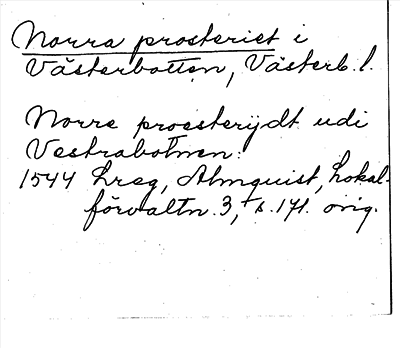 Norra prosteriet i
Västerbotten, Västerb. l.
Norre proesterijdt udi
Vestrabotnen.
1544 Lreg, Almquist, Lokal-
förvaltn. 3, s. 171. orig.